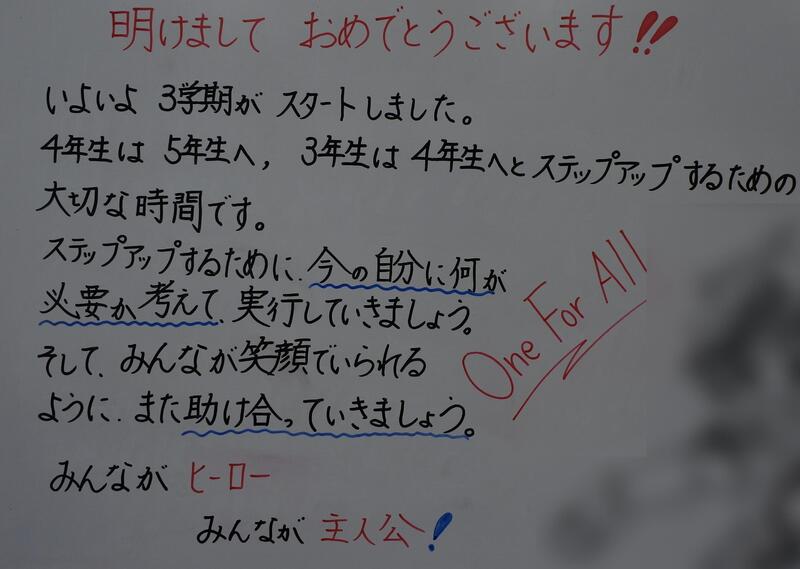 明けまして おめでとうございます!!
いよいよ 3学期が スタートしました。
4年生は 5年生へ, 3年生は 4年生へとステップアップするための
大切な時間です。
ステップアップするために、今の自分に何が
必要か考えて、実行していきましょう。
そして、みんなが笑顔でいられる
ように、また助け合っていきましょう。
One For All
みんなが ヒーロー
みんなが 主人公!